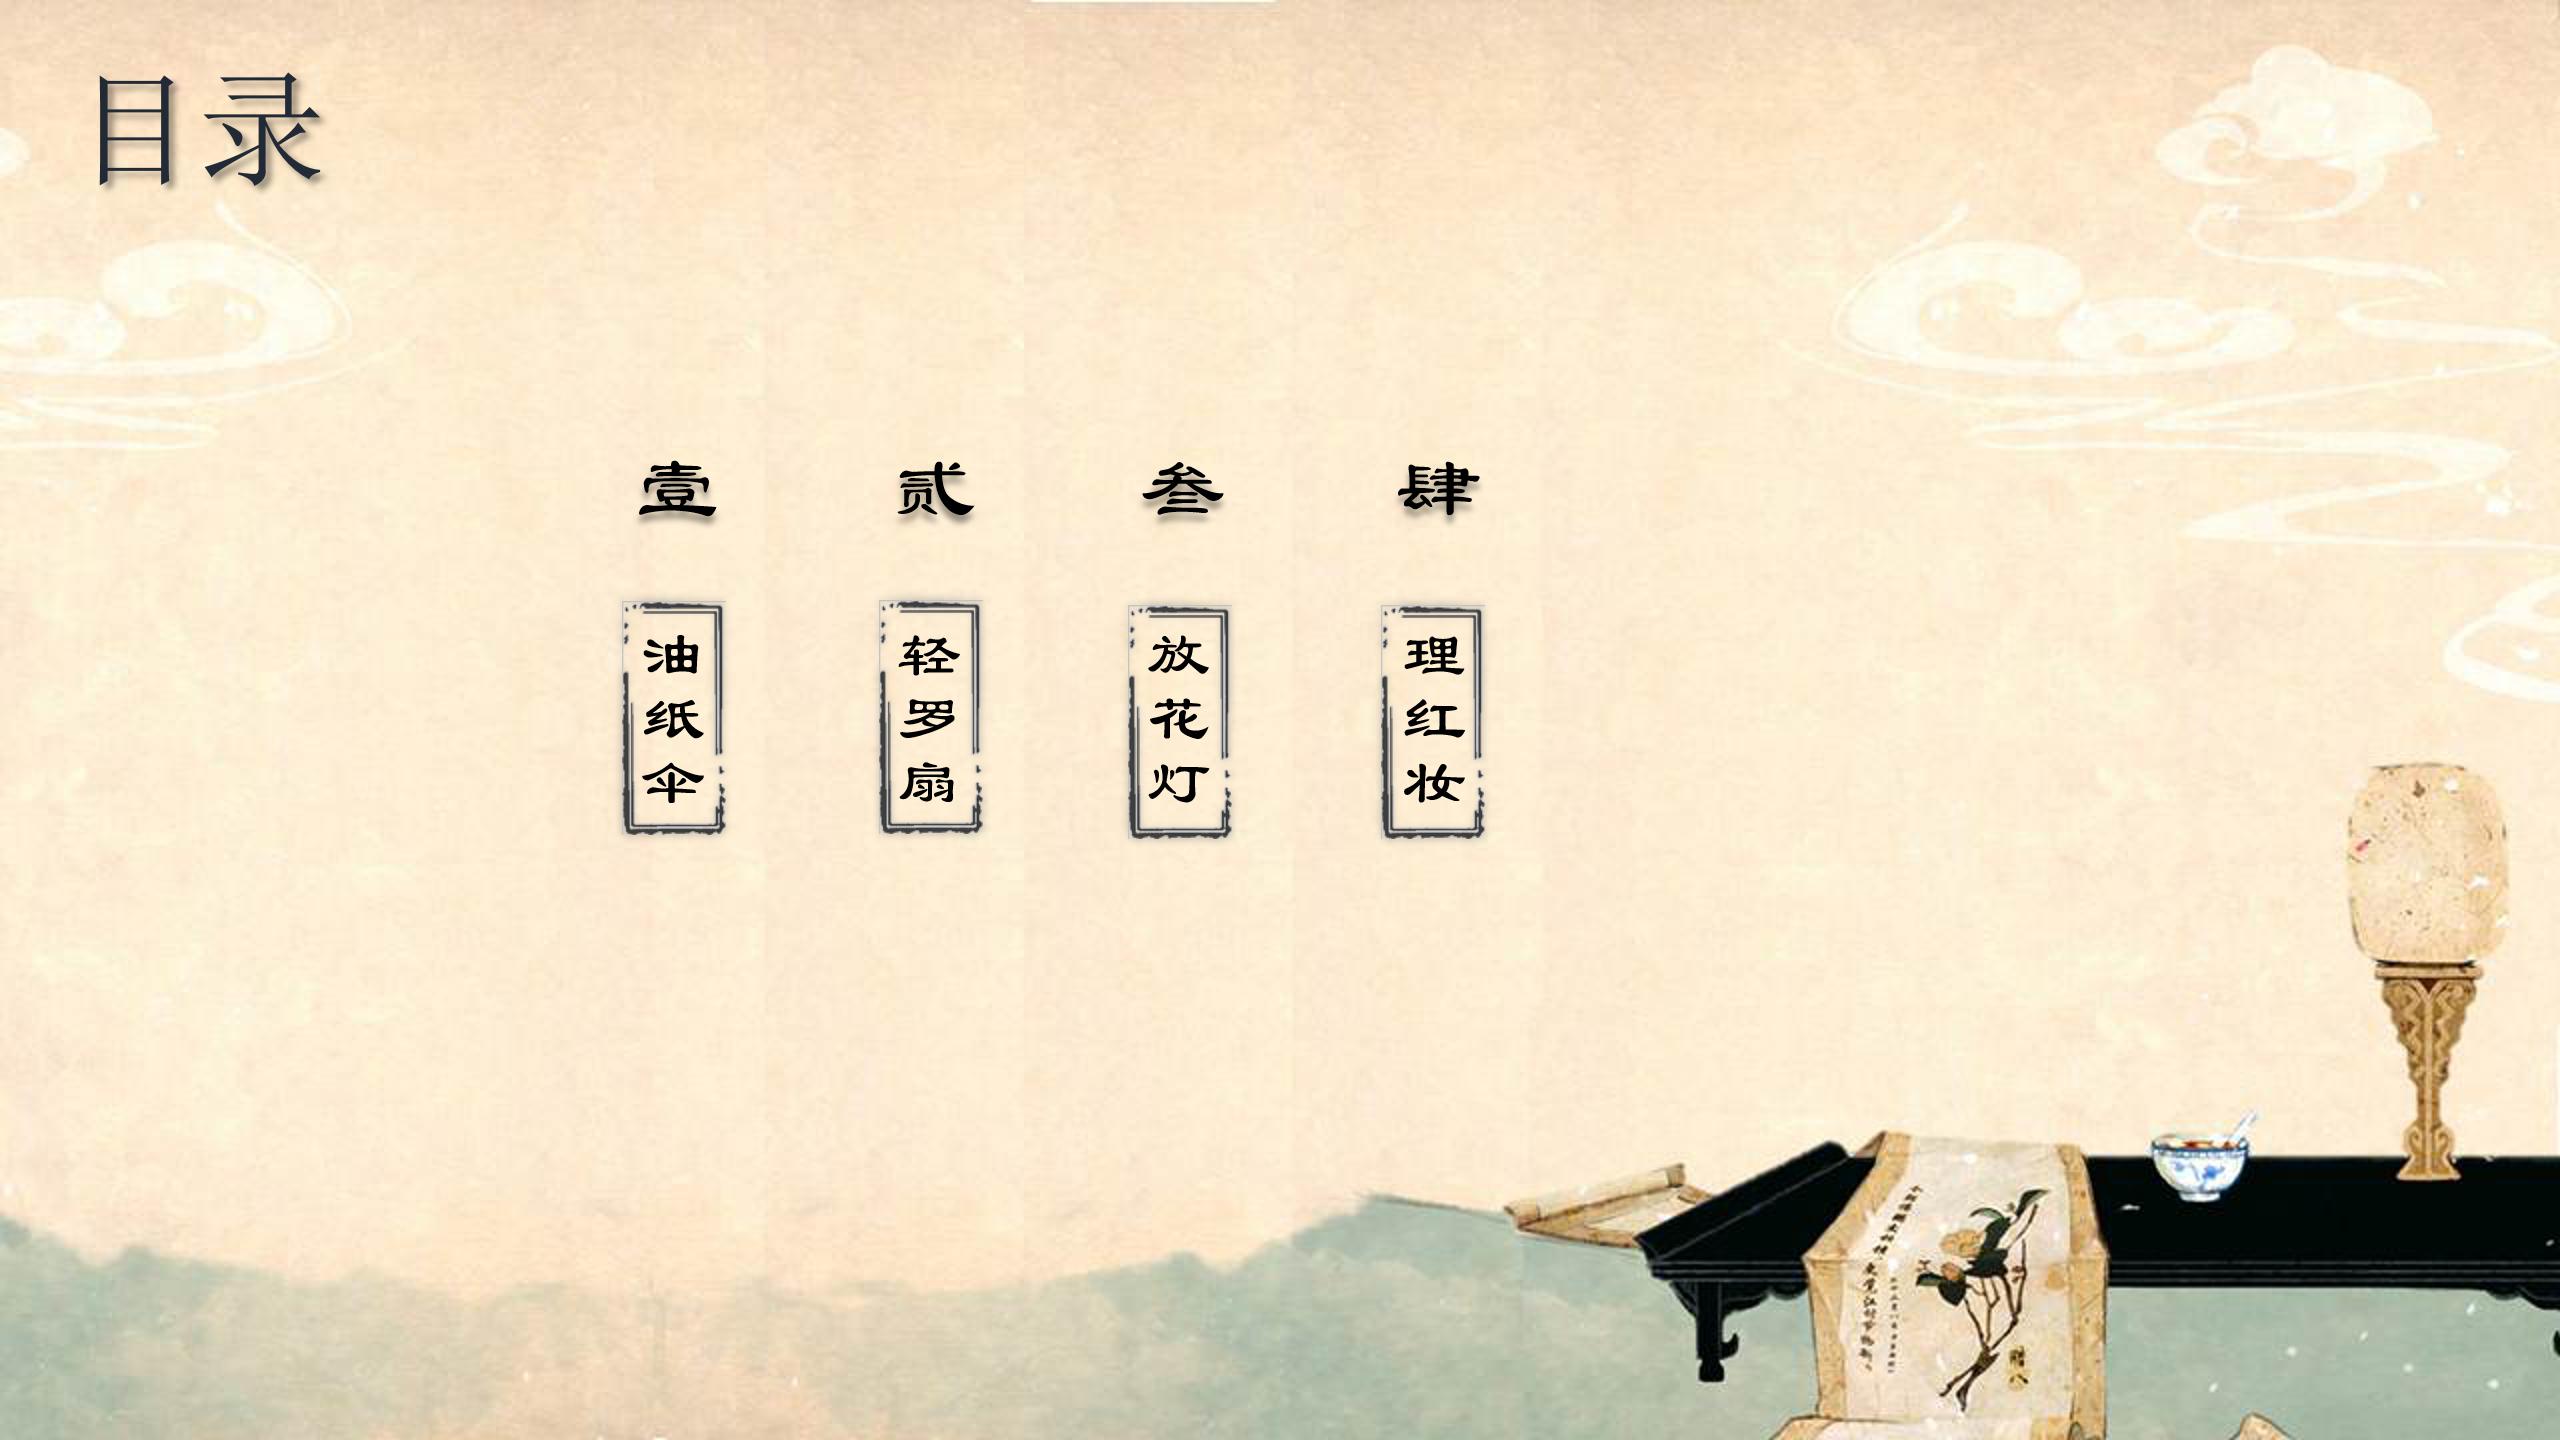 目录
壹
油纸伞
贰
轻罗扇
叁
放花灯
肆
理红妆
腊八